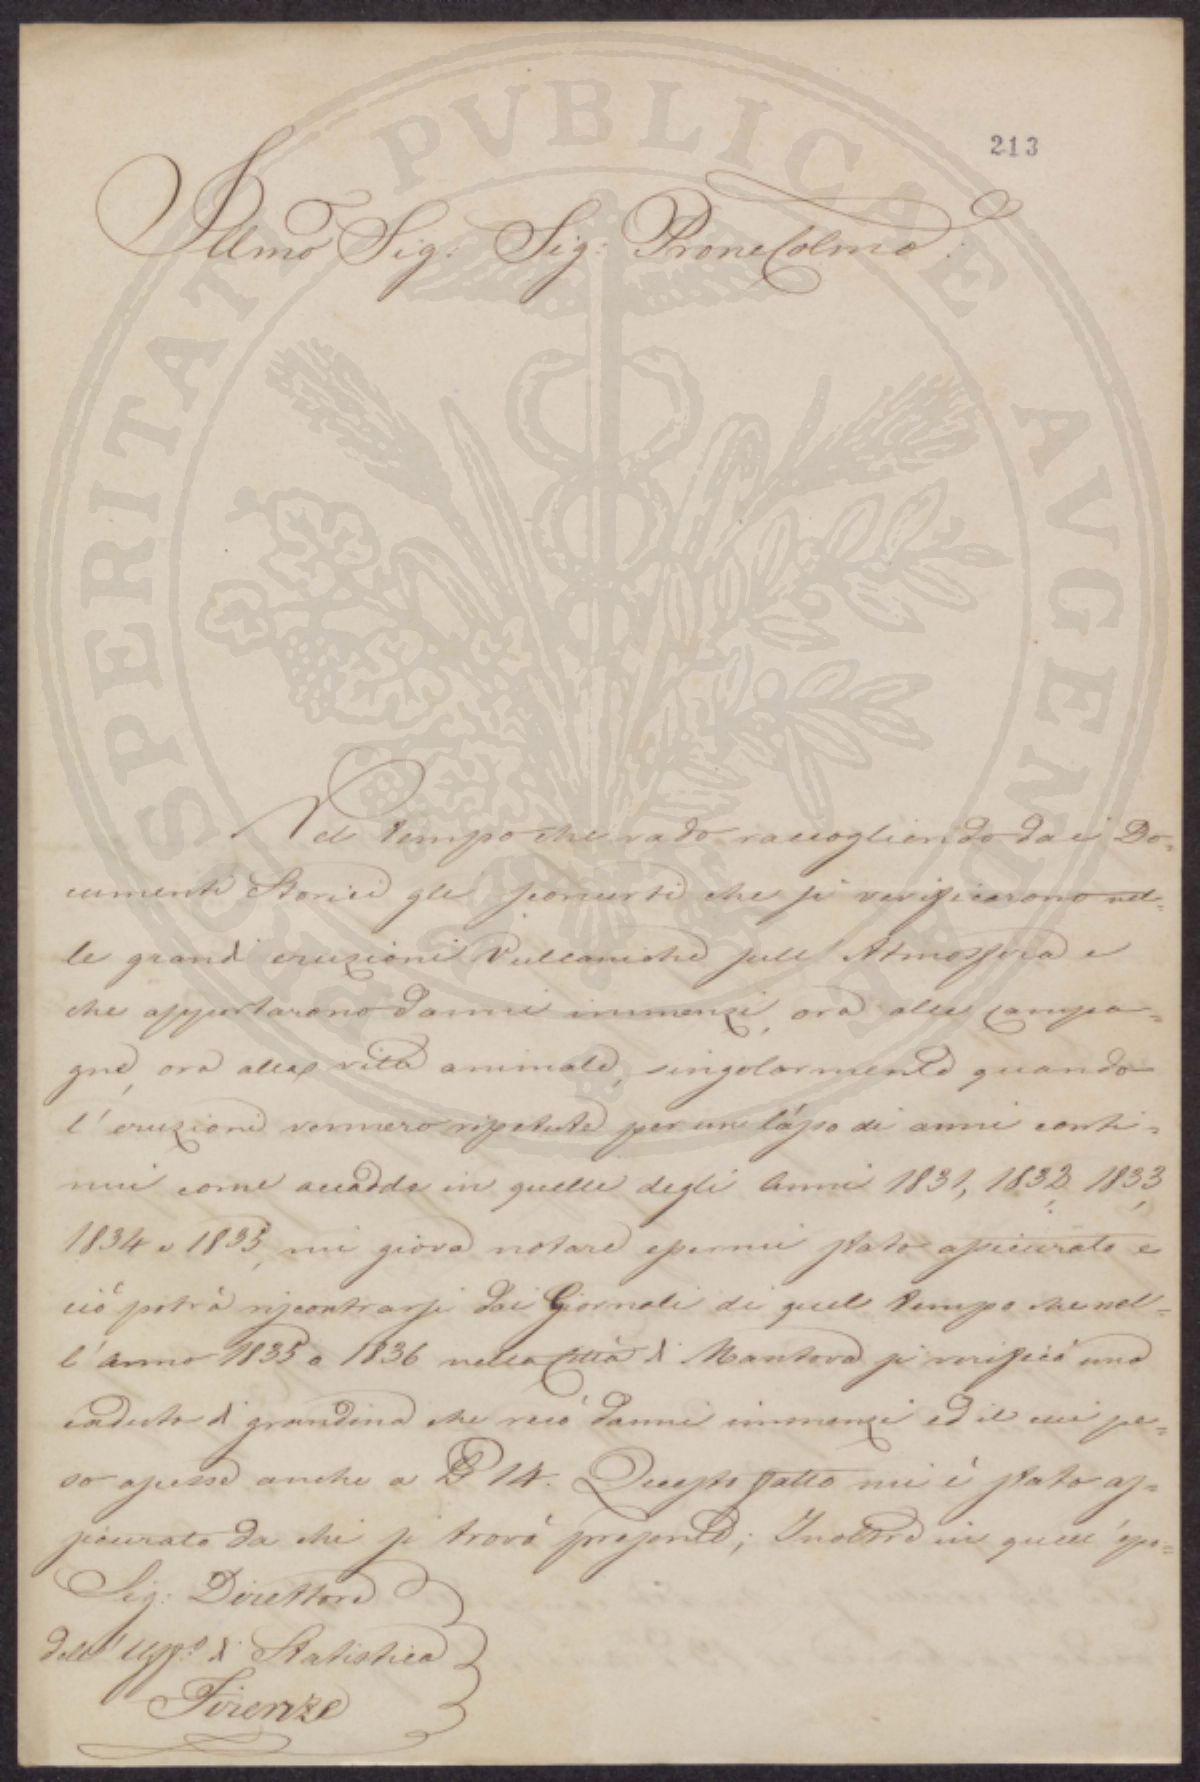 213
Illmo Sig: Sig: Prone Colmo:
Nel tempo che vado raccogliendo dai Do=
cumenti Storici gli sconcerti che si verificarono nel=
le grandi eruzioni Vulcaniche sull' Atmosfera e
che apportarono danni immenzi, ora alle campa=
gne, ora alla vita animale, singolarmente quando
l'eruzioni vennero ripetute per un lasso di anni conti=
nui come accadde in quelle degli Anni 1831, 1832, 1833,
1834 e 1835, mi giova notare essermi stato assicurato e
ciò potrà riscontrarsi dai Giornali di quel tempo che nel=
l'anno 1835 o 1836 nella Città di Mantova si verificò una
caduta di grandine che recò danni immenzi ed il cui pe=
so ascese anche a 14. Questo fatto mi è stato as=
sicurato da chi si trovò presente; Inoltre in quell' epo=
Sig: Direttore
dell' Uffo. di Statistica
Firenze
PROSPERITATI PVBLICAE AVGENDAE